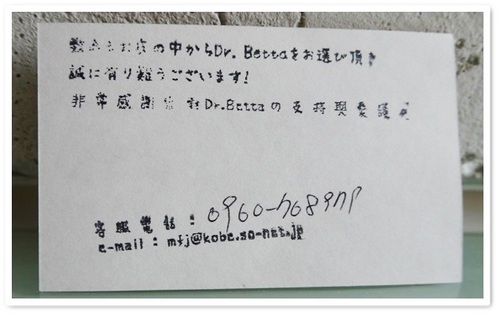 数あるお店の中からDr. Bettaをお選び頂き
誠に有り難うございます!
非常感謝您對Dr.Bettaの支持與愛護
客服電話:
e-mail : mfj@kobe.so-net.jp